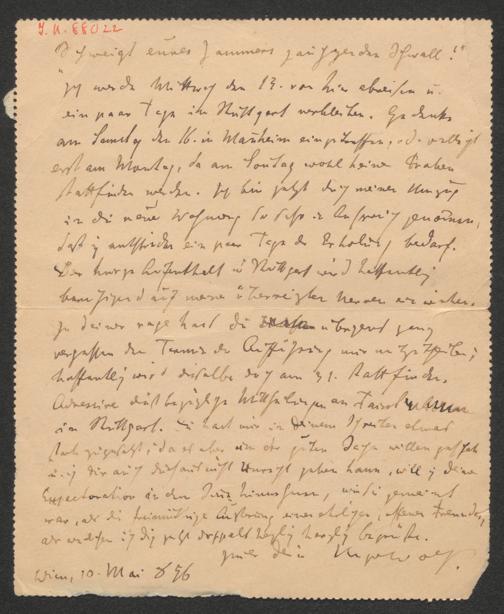 J.N. 88022
Schweigt eures Jammers jauchzender Schwall!"
Ich werde Mittwoch den 13. von hier abreisen u.
ein paar Tage in Stuttgart verbleiben. Gedenke
am Samstag den 16. in Manheim einzutreffen, vielleicht
erst am Montag, da am Sonntag wohl keine Proben
stattfinden werden. Ich bin jetzt durch meinen Umzug
in die neue Wohnung so sehr in Anspruch genommen,
daß ich entschieden ein paar Tage der Erholung bedarf.
Der kurze Aufenthalt in Stuttgart wird hoffentlich
beruhigend auf meine überreizten Nerven einwirken.
In deiner hast du übrigens ganz
vergessen den Termin der Aufführung mir mitzutheilen;
hoffentlich wird dieselbe doch am 31. stattfinden.
Adressire dießbezügliche Mittheilungen an Faisst
in Stuttgart. Du hast mir in deinem Schreiben etwas
stark zugesetzt; da es aber um der guten Sache willen geschah
u. ich dir auch durchaus nicht Unrecht geben kann, will ich deine
Expectoration in dem Sinn hinnehmen, wie sie gemeint
war, als die freimüthige Äußerung eines ehrlichen, offenen Freundes,
als welchen ich dich jetzt doppelt herzlich herzlich begrüße.
Immer dein Hugo Wolf.
Wien, 10. Mai 896